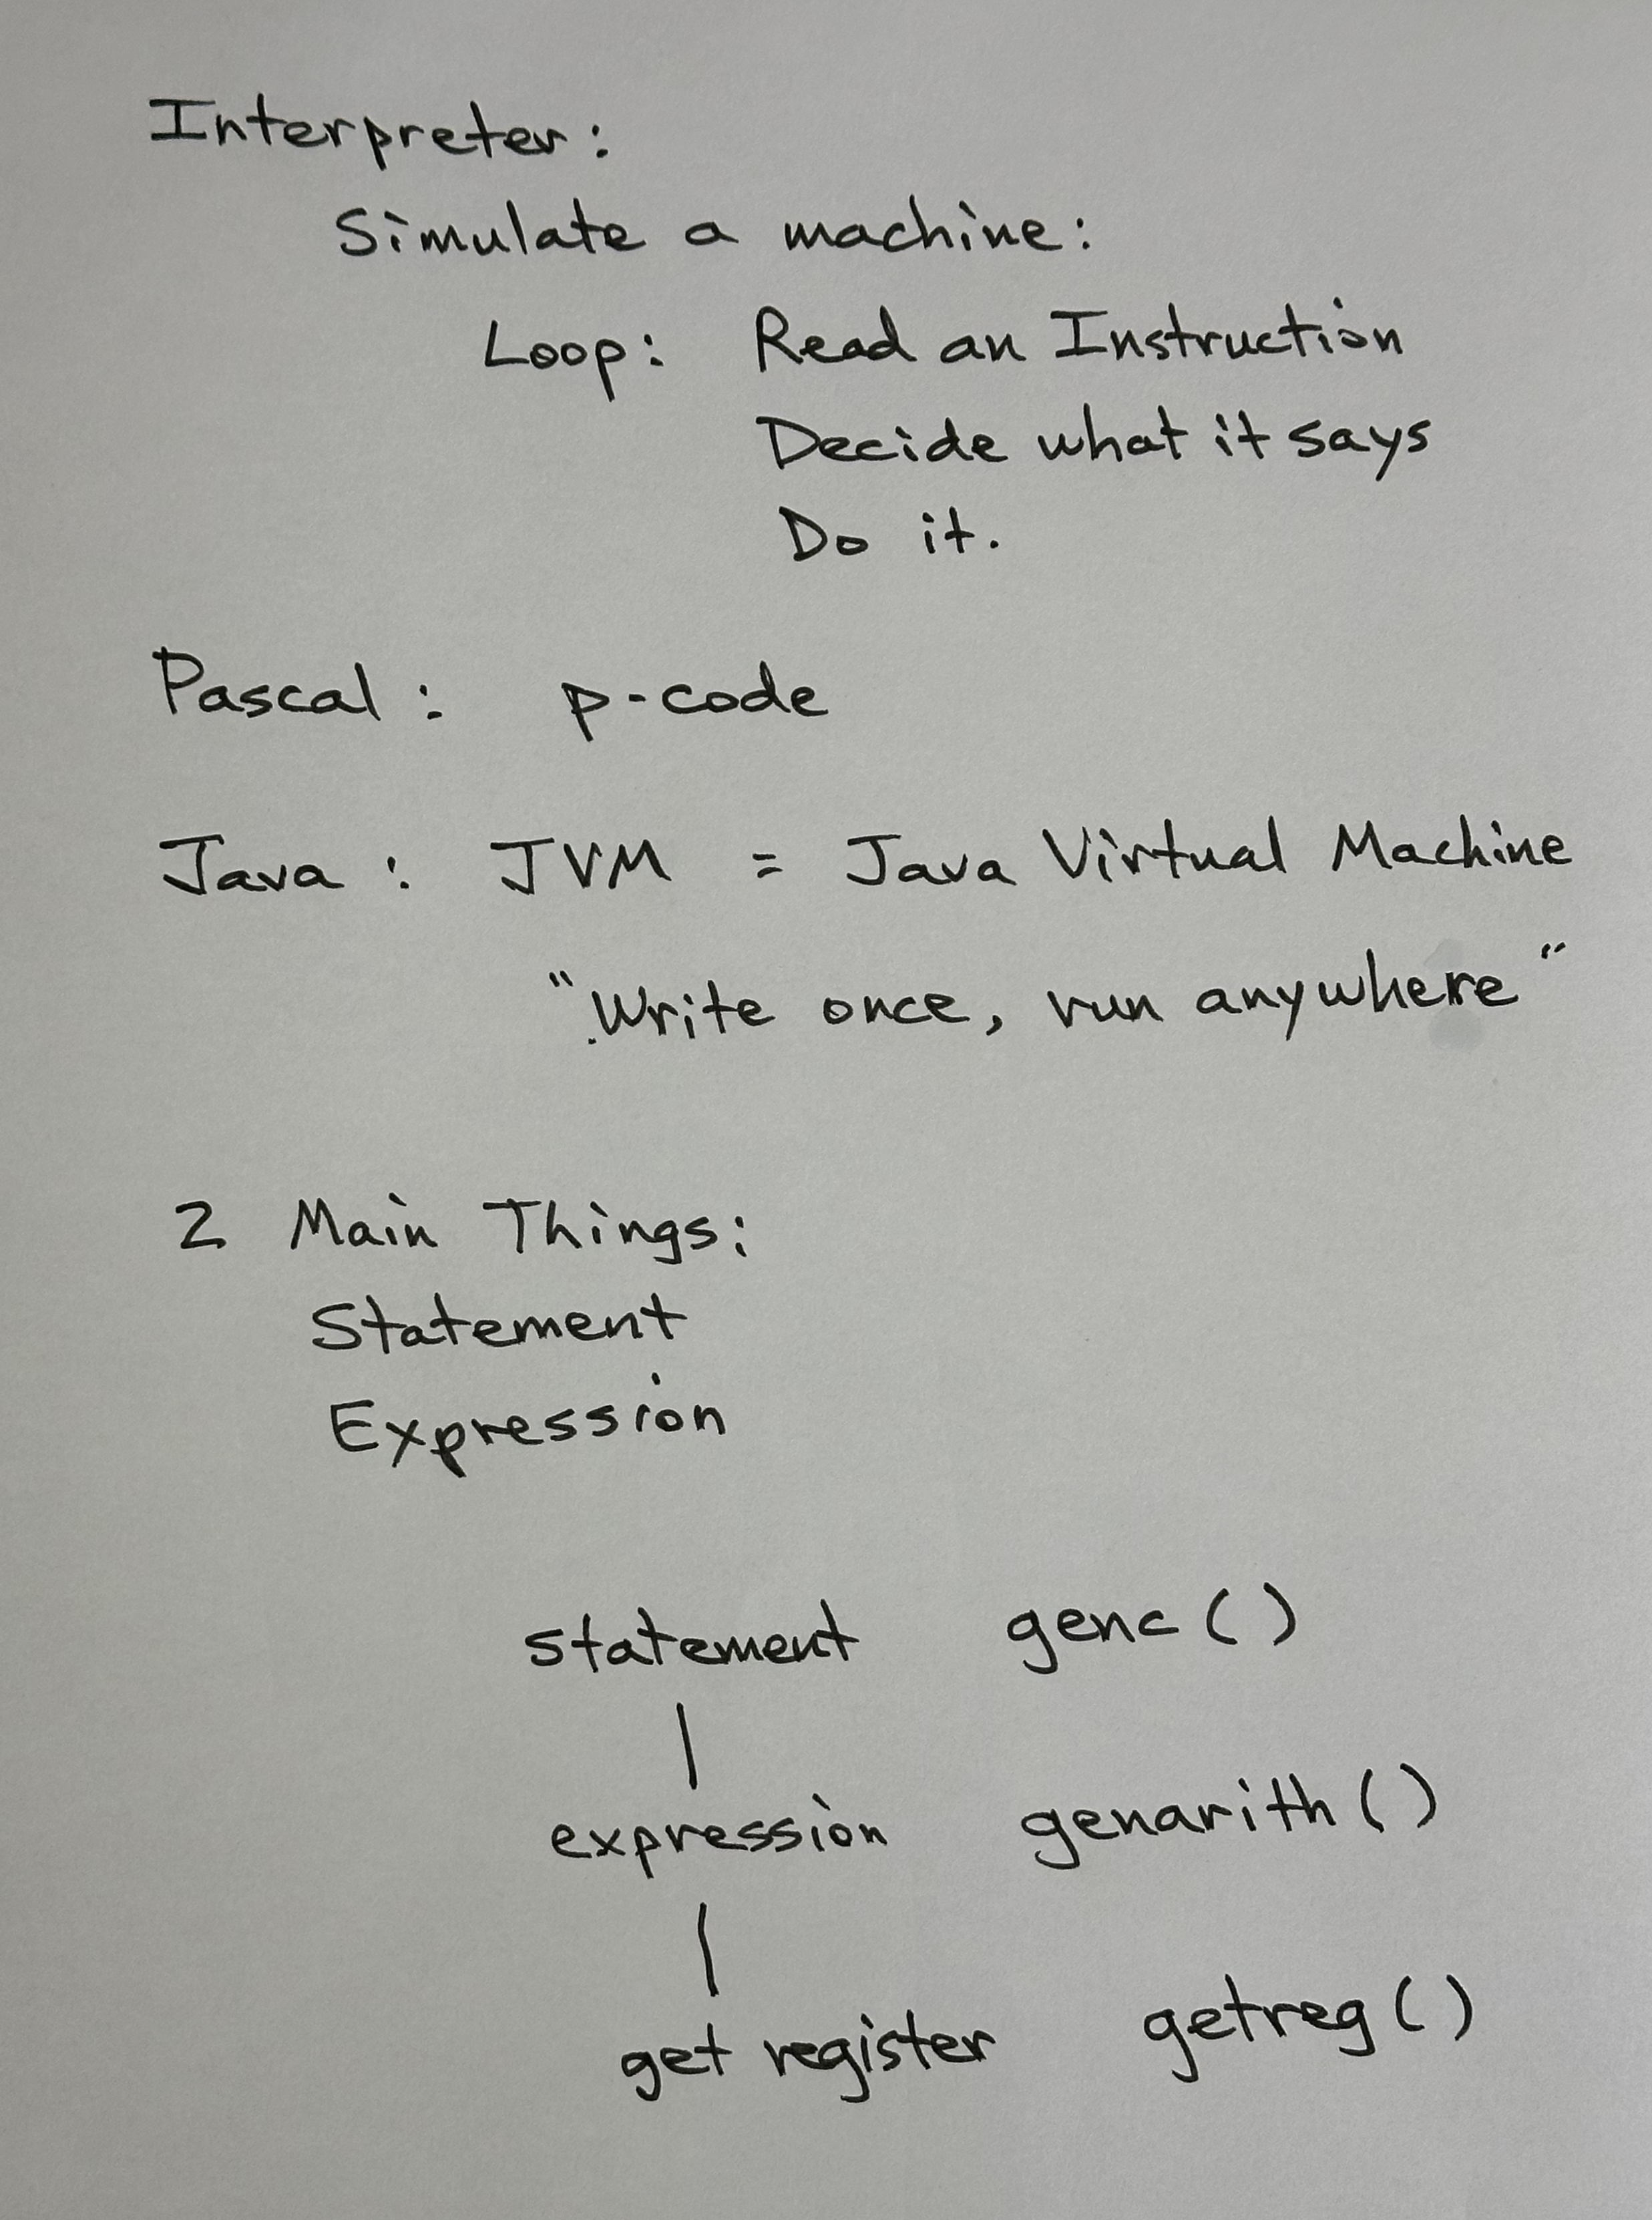 Interpreter:
Simulate a machine:
Loop: Read an Instruction
Decide what it says
Do it.
Pascal: p-code
Java: JVM = Java Virtual Machine
"Write once, run anywhere"
2 Main Things:
Statement
Expression
statement genc()
expression genarith()
get register getreg()